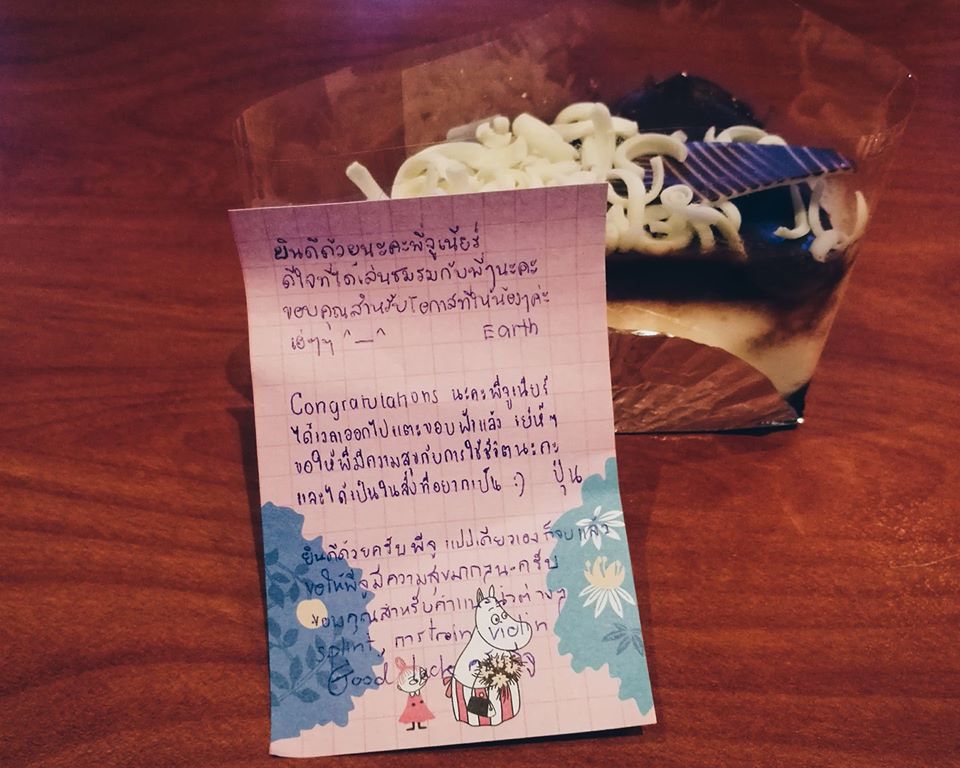 ยินดีด้วยนะคะพี่จูเนียร์
ดีใจที่ได้เล่นชมรมกับพี่ๆนะคะ
ขอบคุณสำหรับโอกาสที่ให้น้องๆค่ะ
เย่ๆๆ ^_^ Earth
Congratulations นะคะพี่จูเนียร์
ได้เวลาออกไปแตะขอบฟ้าแล้ว เย่ห์ๆ
ขอให้พี่มีความสุขกับการใช้ชีวิตนะคะ
และได้เป็นในสิ่งที่อยากเป็น :) ปุ่น
ยินดีด้วยครับพี่จู แปปเดียวเองก็จบแล้ว
ขอให้พี่จูมีความสุขมากๆนะครับ
ขอบคุณสำหรับคำแนะนำต่างๆ
splint, การ train
Good luck